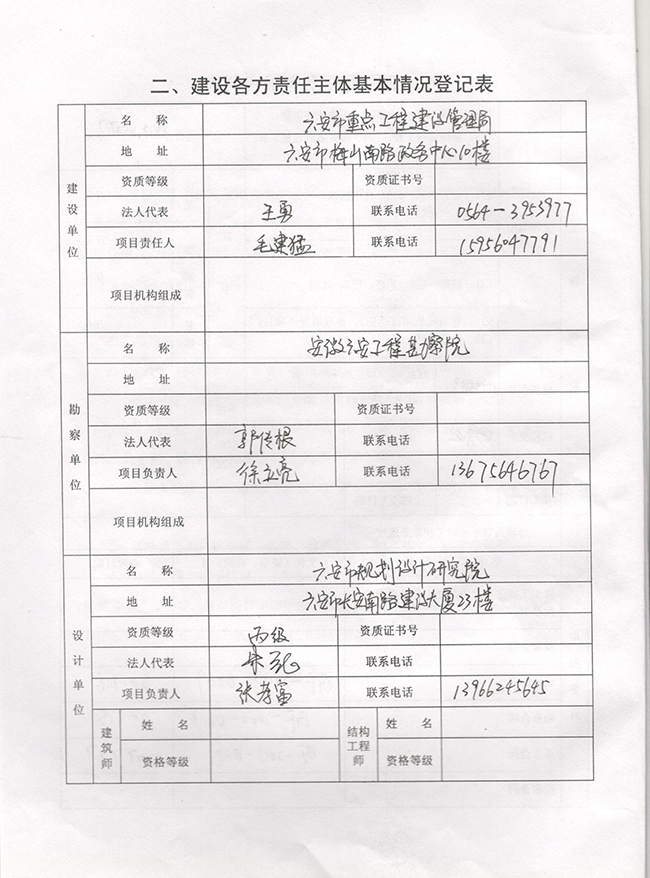 二、建设各方责任主体基本情况登记表
建设单位
名 称 六安市重点工程建设管理局
地 址 六安市梅山南路政务中心10楼
资质等级 资质证书号
法人代表 王勇 联系电话 0564-3953977
项目责任人 毛建猛 联系电话 15956047791
项目机构组成
勘察单位
名 称 安徽六安工程勘察院
地 址
资质等级 资质证书号
法人代表 郭传根 联系电话
项目负责人 徐立亮 联系电话 13675646767
项目机构组成
设计单位
名 称 六安市规划设计研究院
地 址 六安市长安南路建设大厦23楼
资质等级 丙级 资质证书号
法人代表 联系电话
项目负责人 张孝富 联系电话 13966245645
建筑师 姓 名 结构工程师 姓 名
资格等级 资格等级